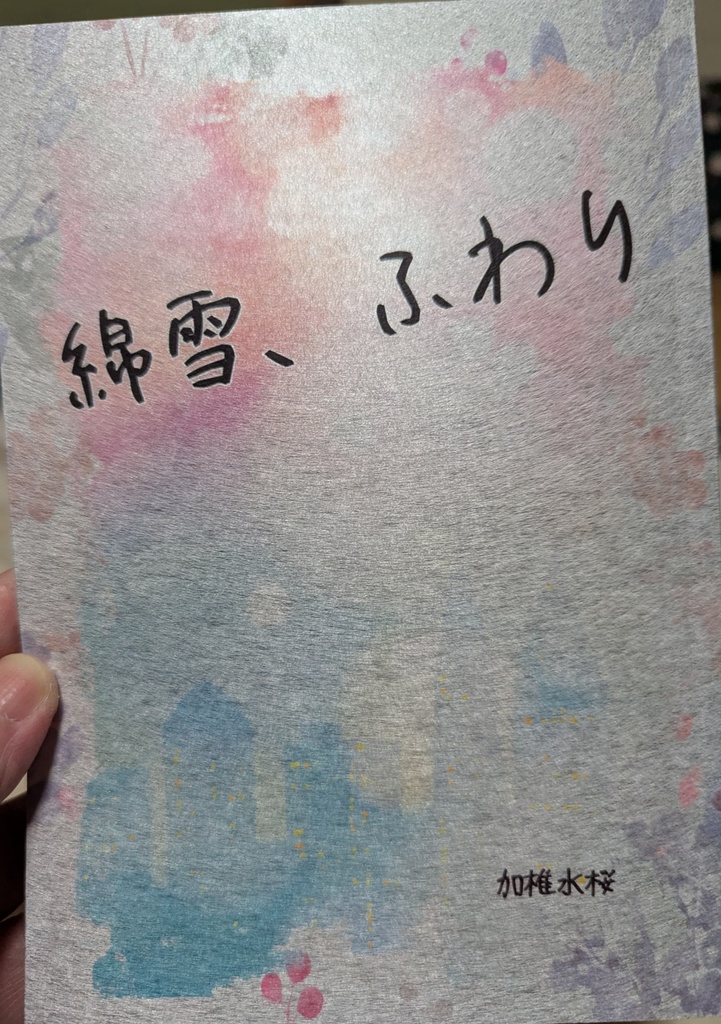 綿雪、ふわり
加椎水桜